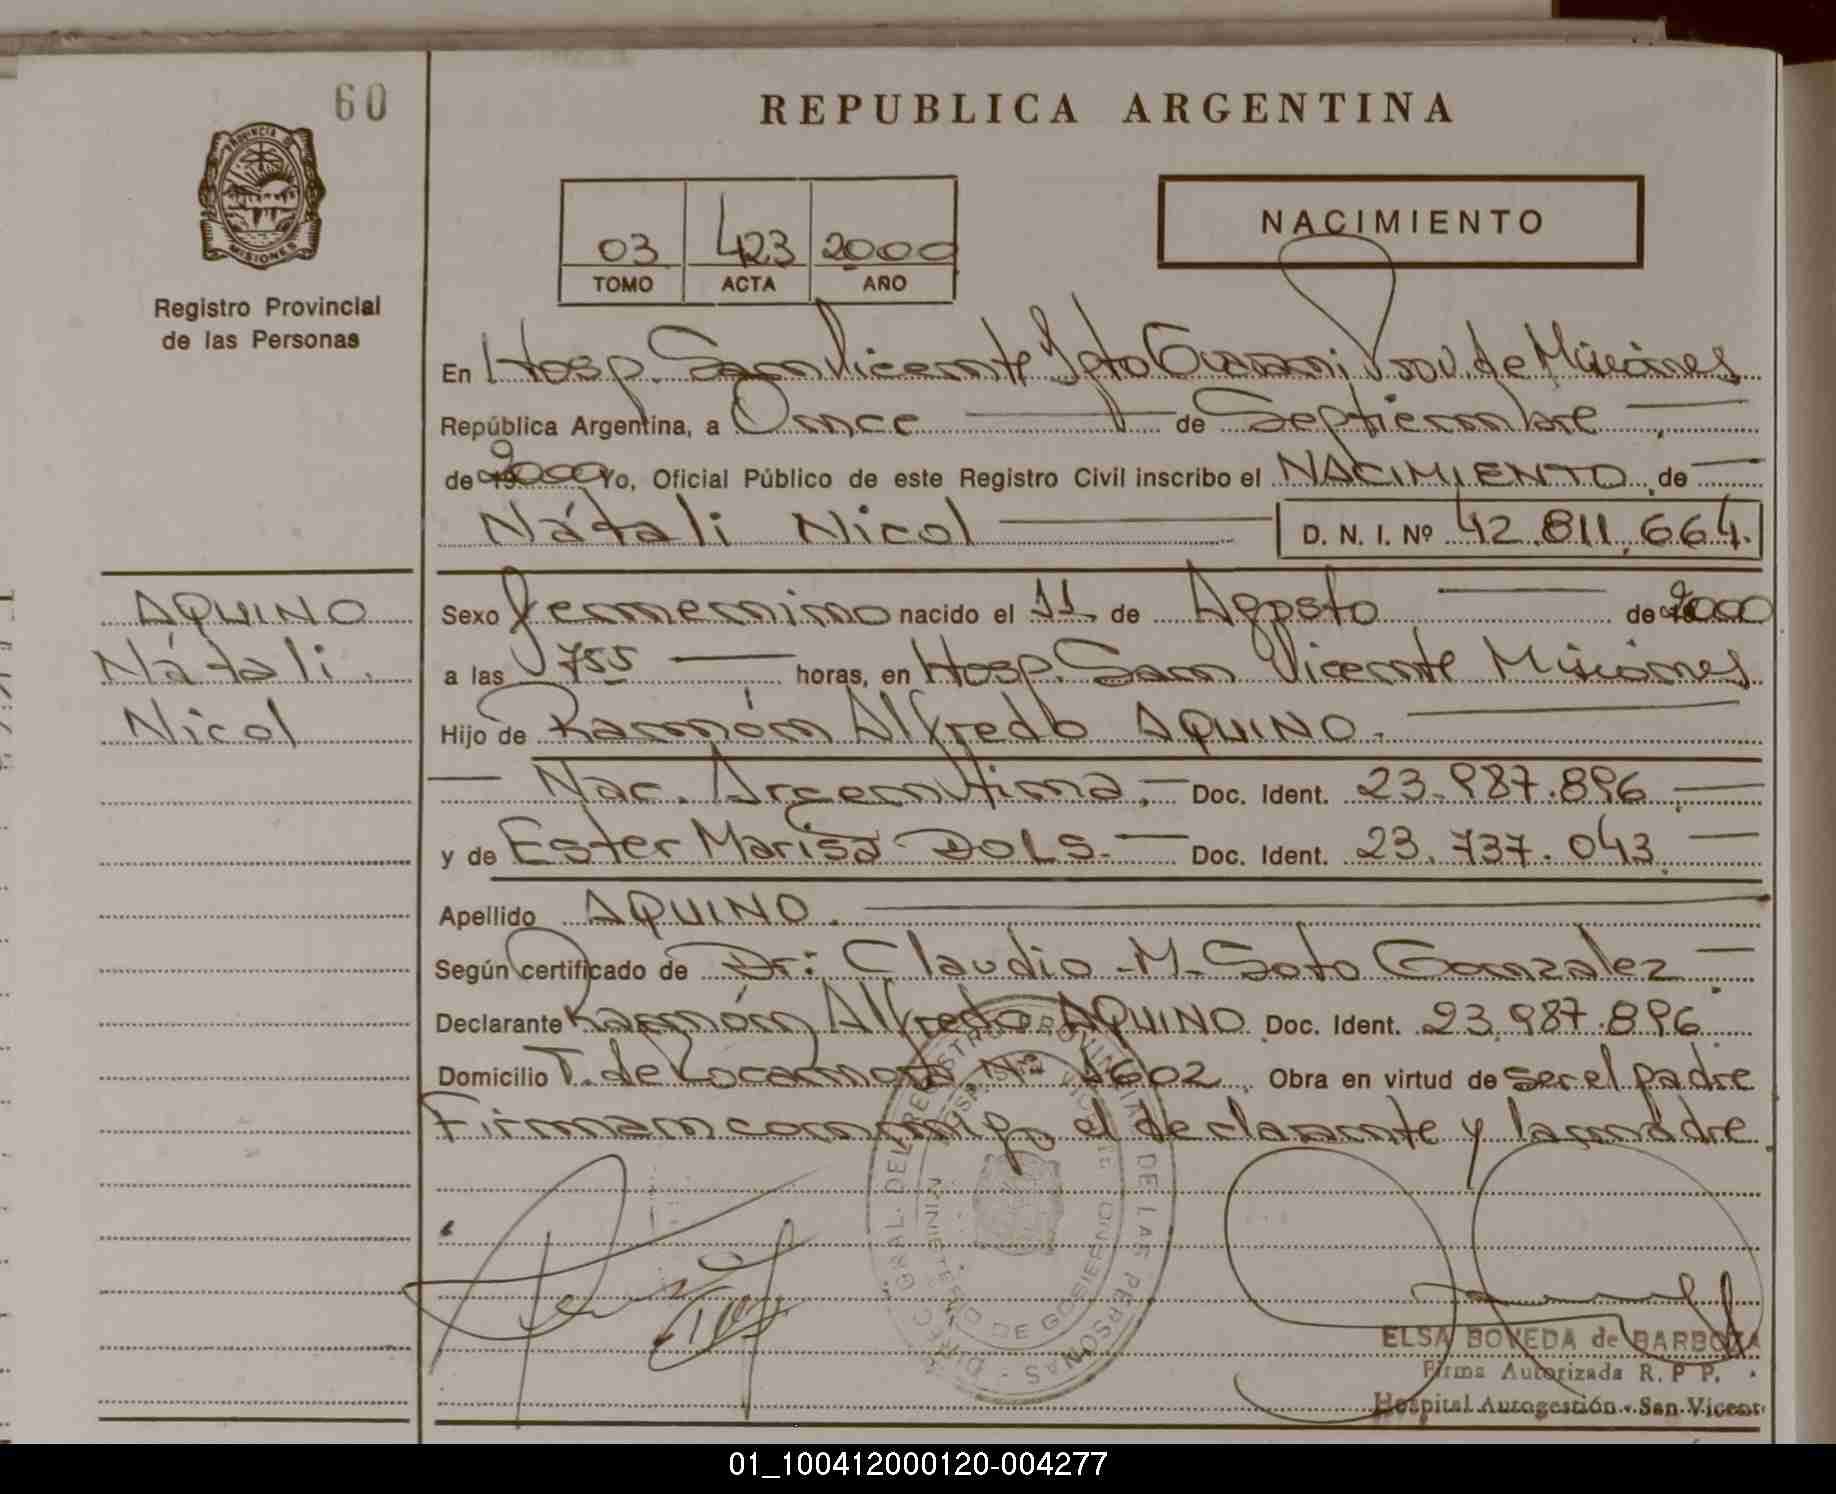 60
REPUBLICA ARGENTINA
PROVINCIA DE
MISIONES
Registro Provincial
de las Personas
03 423 2000
TOMO ACTA AÑO
NACIMIENTO
En Hosp. San Vicente Dpto Guarani Prov. de Misiones
República Argentina, a Once de Septiembre
de 2000 Yo, Oficial Público de este Registro Civil inscribo el NACIMIENTO de
Nátali Nicol D. N. I. Nº 42.811.664.
AQUINO
Nátali
Nicol
Sexo femenino nacido el 11 de Agosto de 2000
a las 755 horas, en Hosp. San Vicente Misiones
Hijo de Ramón Alfredo AQUINO.
Nac. Argentina, Doc. Ident. 23.987.896
y de Ester Marisa DOLS. Doc. Ident. 23.737.043
Apellido AQUINO.
Según certificado de Dr: Claudio M. Soto Gonzalez
Declarante Ramón Alfredo AQUINO Doc. Ident. 23.987.896
Domicilio T. de Rocamora Nº 1602 Obra en virtud de ser el padre
Firman conmigo el declarante y la madre.
DIREC. GRAL. DEL REGISTRO PROVINCIAL DE LAS PERSONAS
MINISTERIO DE GOBIERNO
ELSA BOVEDA de BARBOZA
Firma Autorizada R. P. P.
Hospital Autogestión - San Vicente
01_100412000120-004277